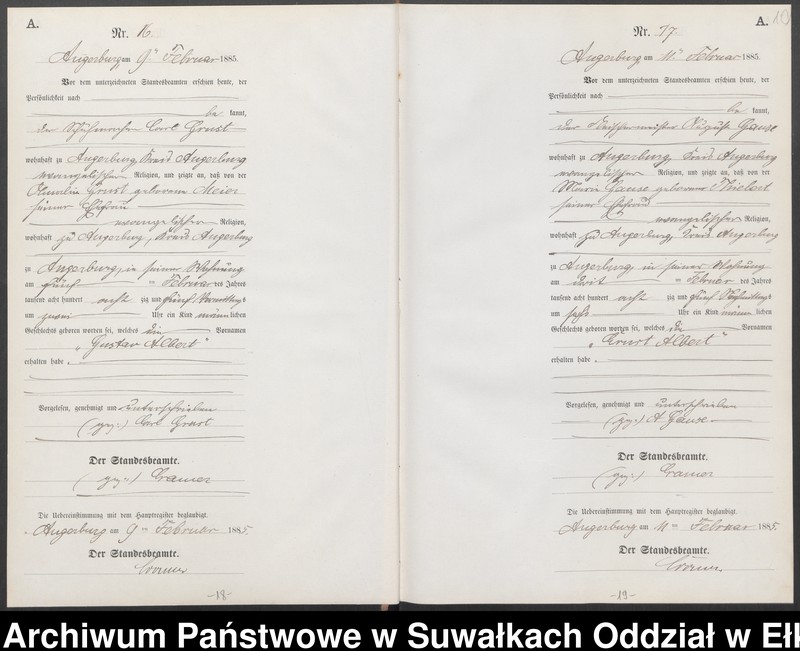 A.
Nr. 16.
Angerburg am 9ten Februar 1885.
Vor dem unterzeichneten Standesbeamten erschien heute, der
Persönlichkeit nach
be kannt,
der Schuhmacher Carl Ernst
wohnhaft zu Angerburg, Kreis Angerburg
evangelischer Religion, und zeigte an, daß von der
Ernst geborene Meier
seiner Ehefrau
evangelischer Religion,
wohnhaft zu Angerburg, Kreis Angerburg
zu Angerburg, in seiner Wohnung
am fünf ten Februar des Jahres
tausend acht hundert acht zig und fünf Vormittags
um zwei Uhr ein Kind männlichen
Geschlechts geboren worden sei, welches die Vornamen
„Gustav Albert“
erhalten habe.
Vorgelesen, genehmigt und unterschrieben
(gez:) Carl Ernst
Der Standesbeamte.
(gez:) Cramer
Die Uebereinstimmung mit dem Hauptregister beglaubigt.
Angerburg am 9ten Februar 1885.
Der Standesbeamte.
Cramer
-18-
A. 10
Nr. 17.
Angerburg am 11ten Februar 1885.
Vor dem unterzeichneten Standesbeamten erschien heute, der
Persönlichkeit nach
be kannt,
der August Gause
wohnhaft zu Angerburg, Kreis Angerburg
evangelischer Religion, und zeigte an, daß von der
Marie Gause geborene Thielert
seiner Ehefrau
evangelischer Religion,
wohnhaft zu Angerburg, Kreis Angerburg
zu Angerburg, in seiner Wohnung
am drit ten Februar des Jahres
tausend acht hundert acht zig und fünf Nachmittags
um sechs Uhr ein Kind männlichen
Geschlechts geboren worden sei, welches die Vornamen
„Ernst Albert“
erhalten habe.
Vorgelesen, genehmigt und unterschrieben
(gez:) A Gause
Der Standesbeamte.
(gez:) Cramer
Die Uebereinstimmung mit dem Hauptregister beglaubigt.
Angerburg am 11ten Februar 1885.
Der Standesbeamte.
Cramer
-19-
Archiwum Państwowe w Suwałkach Oddział w Ełk